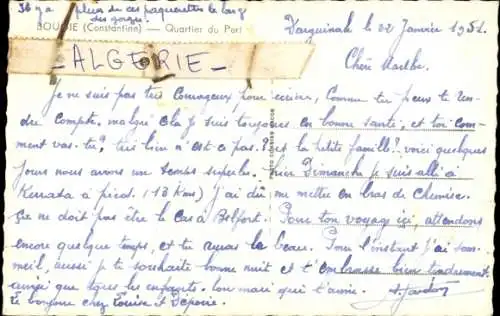 Il y a plein de ces paquerettes le long
des gorges.
BOUGIE (Constantine) — Quartier du Port
- ALGERIE -
Darguinah le 22 Janvier 1952
Chère
Je ne suis pas très courageux pour écrire, comme tu peux te ren-
dre compte. malgré cela je suis toujours en bonne santé, et toi com-
ment vas-tu? très bien n'est ce pas? et la petite famille? voici quelques
jours nous avons un temps superbe. hier Dimanche je suis allé à
Kerrata à pied. (13 Kms) j'ai dû me mettre en bras de chemise.
Ça ne doit pas être le cas à Belfort. Pour ton voyage ici, attendons
encore quelque temps, et tu verras le beau. Pour l'instant j'ai som-
meil, aussi je te souhaite bonne nuit et t'embrasse bien tendrement
ainsi que tous les enfants. ton mari qui t'aime.
le bonjour chez Louise et